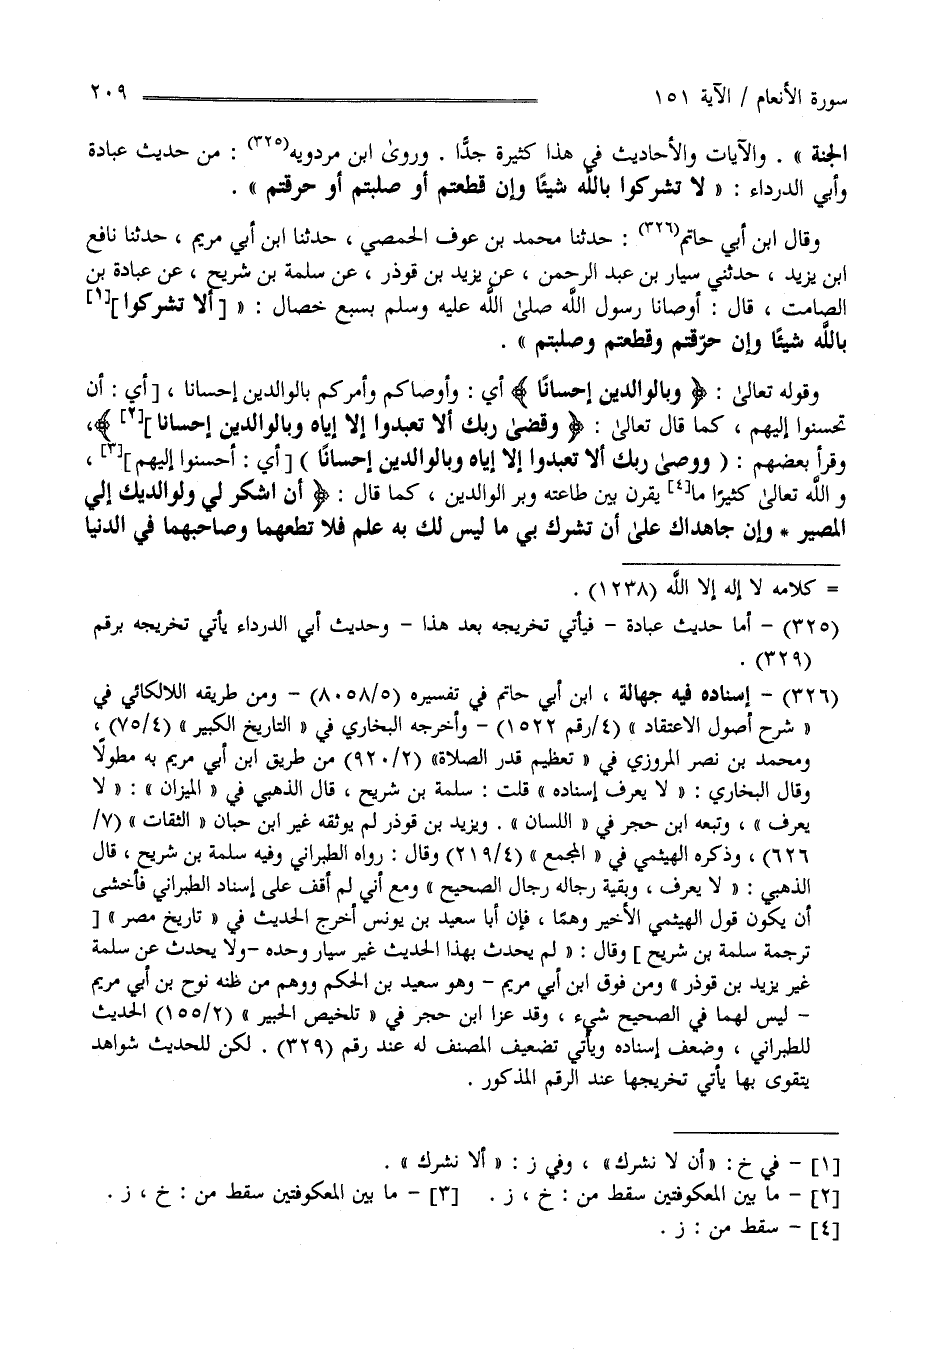 سورة الأنعام / الآية ١٥١ ٢٠٩
الجنة » . والآيات والأحاديث في هذا كثيرة جدًّا . وروىٰ ابن مردويه(٣٢٥) : من حديث عبادة
وأبي الدرداء : « لا تشركوا باللَّه شيئًا وإن قطعتم أو صلبتم أو حرقتم » .
وقال ابن أبي حاتم(٣٢٦) : حدثنا محمد بن عوف الحمصي ، حدثنا ابن أبي مريم ، حدثنا نافع
ابن يزيد ، حدثني سيار بن عبد الرحمن ، عن يزيد بن قوذر ، عن سلمة بن شريح ، عن عبادة بن
الصامت ، قال : أوصانا رسول اللَّه صلىٰ اللَّه عليه وسلم بسبع خصال : « [ ألا تشركوا ][١]
باللَّه شيئًا وإن حرّقتم وقطعتم وصلبتم » .
وقوله تعالىٰ : ﴿ وبالوالدين إحسانًا ﴾ أي : وأوصاكم وأمركم بالوالدين إحسانا ، [ أي : أن
تحسنوا إليهم ، كما قال تعالىٰ : ﴿ وقضىٰ ربك ألا تعبدوا إلا إياه وبالوالدين إحسانا ][٢] ﴾،
وقرأ بعضهم : ( ووصىٰ ربك ألا تعبدوا إلا إياه وبالوالدين إحسانًا ) [ أي : أحسنوا إليهم ][٣] ،
و اللَّه تعالىٰ كثيرًا ما[٤] يقرن بين طاعته وبر الوالدين ، كما قال : ﴿ أن اشكر لي ولوالديك إلي
المصير * وإن جاهداك علىٰ أن تشرك بي ما ليس لك به علم فلا تطعهما وصاحبهما في الدنيا
= كلامه لا إله إلا اللَّه (١٢٣٨) .
(٣٢٥) - أما حديث عبادة - فيأتي تخريجه بعد هذا - وحديث أبي الدرداء يأتي تخريجه برقم
(٣٢٩) .
(٣٢٦) - إسناده فيه جهالة ، ابن أبي حاتم في تفسيره (٨٠٥٨/٥) - ومن طريقه اللالكائي في
« شرح أصول الاعتقاد » (٤/رقم ١٥٢٢) - وأخرجه البخاري في « التاريخ الكبير » (٧٥/٤) ،
ومحمد بن نصر المروزي في « تعظيم قدر الصلاة» (٩٢٠/٢) من طريق ابن أبي مريم به مطولًا
وقال البخاري : « لا يعرف إسناده » قلت : سلمة بن شريح ، قال الذهبي في « الميزان » : « لا
يعرف » ، وتبعه ابن حجر في « اللسان » . ويزيد بن قوذر لم يوثقه غير ابن حبان « الثقات » (٧/
٦٢٦) ، وذكره الهيثمي في « المجمع » (٢١٩/٤) وقال : رواه الطبراني وفيه سلمة بن شريح ، قال
الذهبي : « لا يعرف ، وبقية رجاله رجال الصحيح » ومع أني لم أقف على إسناد الطبراني فأخشى
أن يكون قول الهيثمي الأخير وهمًا ، فإن أبا سعيد بن يونس أخرج الحديث في « تاريخ مصر » [
ترجمة سلمة بن شريح ] وقال : « لم يحدث بهذا الحديث غير سيار وحده -ولا يحدث عن سلمة
غير يزيد بن قوذر » ومن فوق ابن أبي مريم - وهو سعيد بن الحكم ووهم من ظنه نوح بن أبي مريم
- ليس لهما في الصحيح شيء ، وقد عزا ابن حجر في « تلخيص الحبير » (١٥٥/٢) الحديث
للطبراني ، وضعف إسناده ويأتي تضعيف المصنف له عند رقم (٣٢٩) . لكن للحديث شواهد
يتقوى بها يأتي تخريجها عند الرقم المذكور .
[١] - في خ : «أن لا نشرك» ، وفي ز : « ألا نشرك » .
[٢] - ما بين المعكوفتين سقط من : خ ، ز . [٣] - ما بين المعكوفتين سقط من : خ ، ز .
[٤] - سقط من : ز .